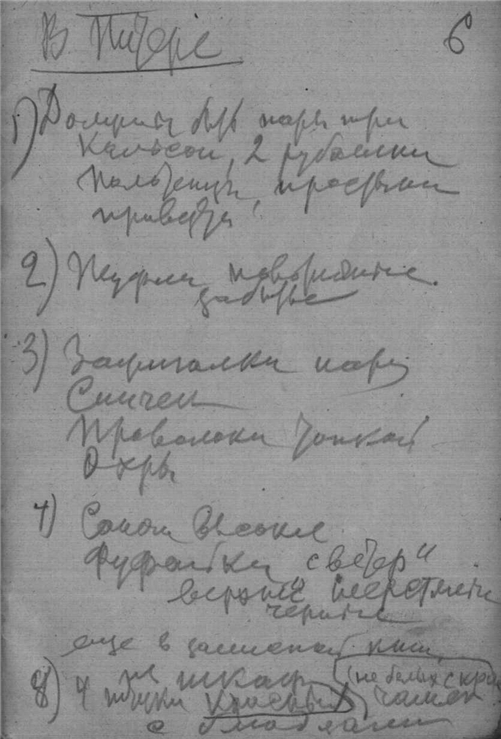 В Питере
6
1) Должны быть пары три
Кальсон, 2 рубашки
полотенцы, простыни
привезти
2) Туфли
забыты
3) Зажигалки пару
Спичек
Проволоки тонкой
Охры
4) Сапоги высокие
Фуфайки свитер и
верхний шерстяные
черные
еще в записной книж
на шкафу (не белых с кра
8) 4 штуки красных) чашек
с блюдцами